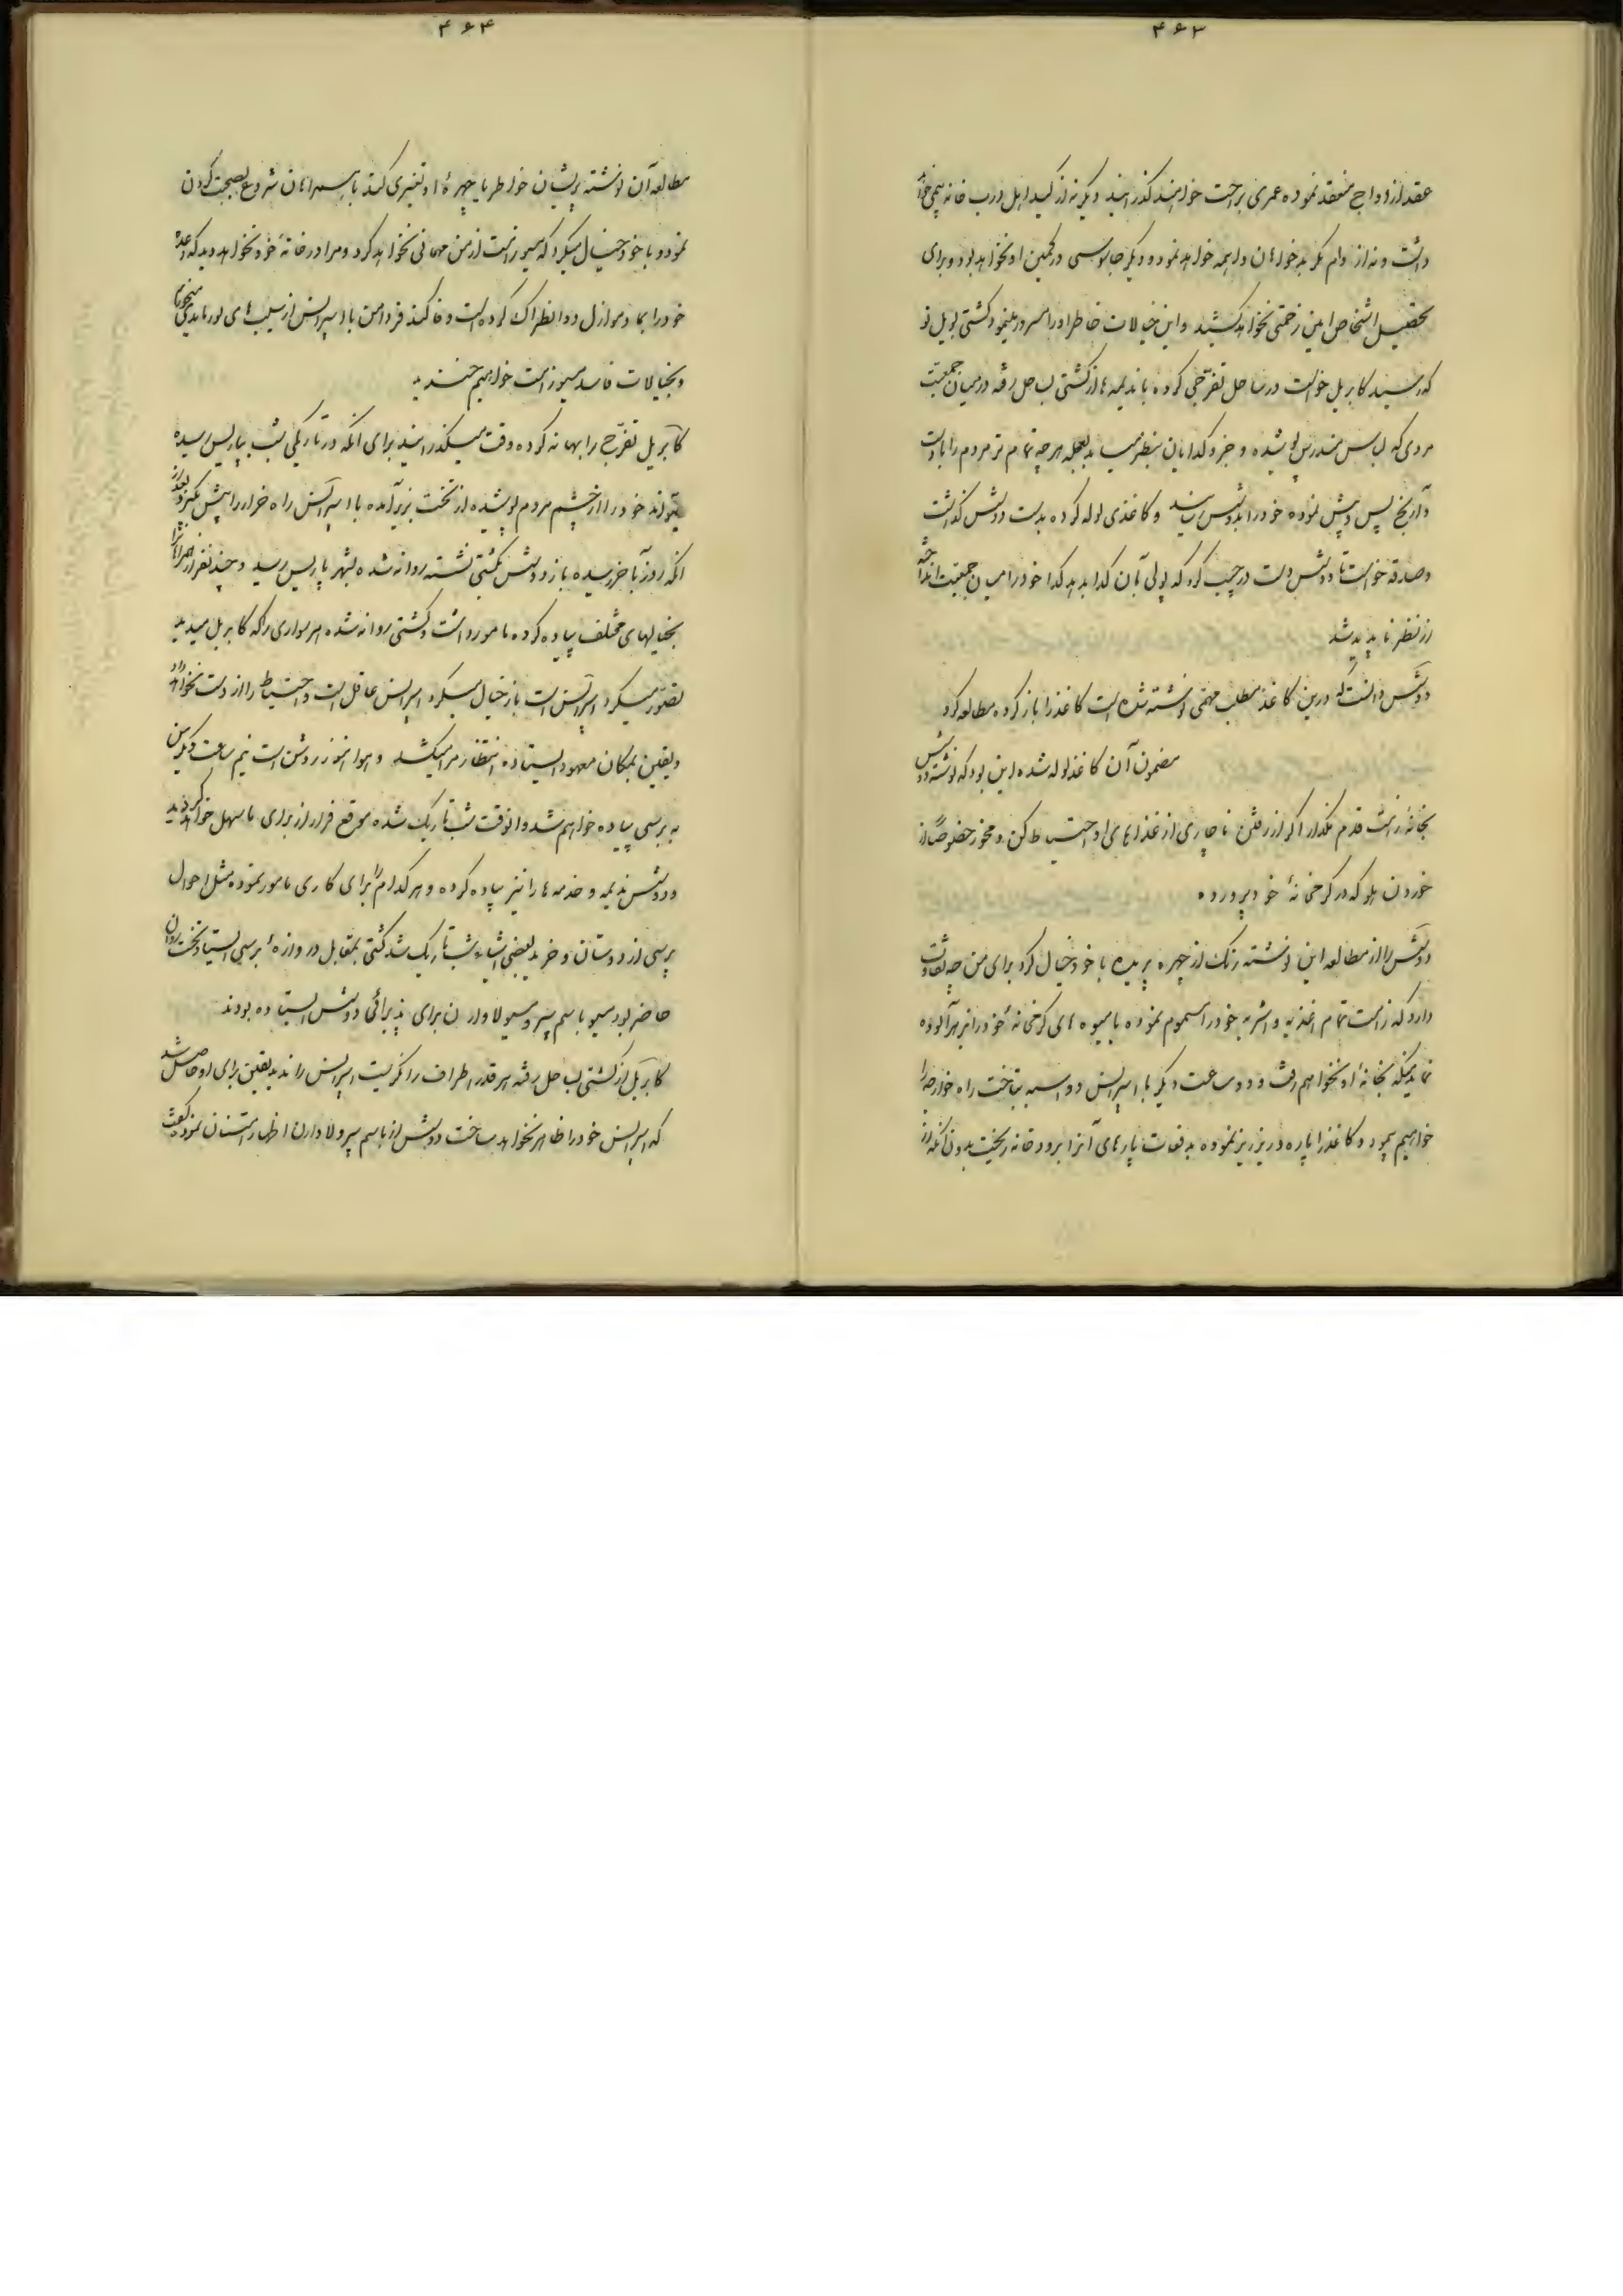 ۴۶۳
عقد ازدواج منعقد نموده عمری براحت خواهند گذرانید دیگر نه از کید اهل درب خانه بیمی خواهد
داشت و نه از دام مکر بدخواهان واهمه خواهد نمود و دیگر جاسوسی در کمین او نخواهد بود و برای
تحصیل اشخاص امین زحمتی نخواهد کشید و این خیالات خاطر او را مسرور مینمود کشتی
که رسید کابریل خواست در ساحل تفرجی کرده با ندیمه ها از کشتی بساحل رفته در میان جمعیت
مردی که لباس مندرس پوشیده و جزو گدایان بنظر میامد بعجله هر چه تمام تر مردم را با دست
و آرنج پس و پیش نموده خود را بدوشس رسانید و کاغذی لوله کرده بدست دوشس گذاشت
و صدقه خواست تا دوشس دست در جیب کرد که پولی بآن گدا بدهد گدا خود را میان جمعیت انداخته
از نظر ناپدید شد
دوشس دانست که درین کاغذ مطلب مهمی نوشته شده است کاغذ را باز کرده مطالعه کرد
مضمون آن کاغذ لوله شده این بود که نوشته دوشس
بخانه زامت قدم مگذار اگر از رفتن ناچاری از غذاهای او احتیاط کن و مخور خصوصاً از
خوردن هلو که در گرمخانهٔ خود پرورده
دوشس را از مطالعه این نوشته رنگ از چهره پریده با خود خیال کرد برای من چه تفاوت
دارد که زامت تمام اغذیه و اشربه خود را مسموم نموده یا میوه های گرمخانهٔ خود را بزهر آلوده
نماید منکه بخانهٔ او نخواهم رفت و دو ساعت دیگر با اسپرانس دو اسبه بتاخت راه خارجه را
خواهیم پیمود و کاغذ را پاره و ریز ریز نموده بدفعات پارهای آنرا برودخانه ریخت بدون آنکه از
۴۶۴
مطالعه آن نوشته پریشان خاطر یا چهرهٔ او تغییری کند با همراهان شروع بصحبت کردن
نمود و با خود خیال میکرد که مسیو زامت از من مهمانی نخواهد کرد و مرا در خانهٔ خود نخواهد دید که وعدهٔ
خود را بمادموازل دوانطراک کرده است وفا کند فردا من با اسپرانس از سیب های میخوریم
و بخیالات فاسد مسیو زامت خواهیم خندید
کابریل تفرج را بهانه کرده وقت میگذرانید برای آنکه در تاریکی شب بپاریس رسیده
بتواند خود را از چشم مردم پوشیده از تخت بزیر آمده با اسپرانس راه فرار را پیش گیرد بعد از
آنکه روز بآخر رسیده باز دوشس بکشتی نشسته روانه شده بشهر پاریس رسید و چند نفر از همراهانرا
بخیالهای مختلف پیاده کرده مامور داشت و کشتی روانه شده هر سواری را که کابریل میدید
تصور میکرد اسپرانس است باز خیال میکرد اسپرانس عاقل است و احتیاط را از دست نخواهد داد
و یقین بمکان معهود ایستاده انتظار مرا میکشد و هوا هنوز روشن است نیم ساعت دیگر من
به برسی پیاده خواهم شد و آنوقت شب تاریک شده موقع فرار از برای ما سهل خواهد گردید
و دوشس ندیمه و خدمه ها را نیز پیاده کرده و هر کدام را برای کاری مامور نموده مثل احوال
پرسی از دوستان و خرید بعضی اشیاء شب تاریک شد کشتی بمقابل دروازهٔ برسی ایستاد تخت روان
حاضر بود مسیو باسم پیر و مسیو لاوارن برای پذیرائی دوشس ایستاده بودند
کابریل از کشتی بساحل رفته هر قدر اطراف را نگریست اسپرانس را ندید یقین برای او حاصل شد
که اسپرانس خود را ظاهر نخواهد ساخت دوشس از باسم پیر و لاوارن اظهار امتنان نمود گفت